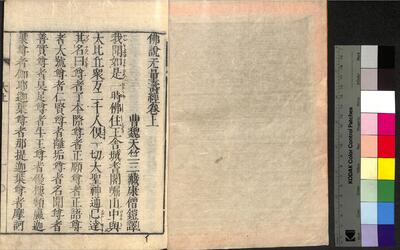 佛說无量壽經卷上
曹魏天竺三藏康僧鎧譯
我聞如是一時佛住王舍城耆闍崛山中與
大比丘衆万二千人俱一切大聖神通已達
其名曰尊者了本際尊者正願尊者正語尊
者大號尊者仁賢尊者離垢尊者名聞尊者
善實尊者具足尊者牛王尊者優樓頻蠡迦
葉尊者伽耶迦葉尊者那提迦葉尊者摩訶
KODAK Color Control Patches